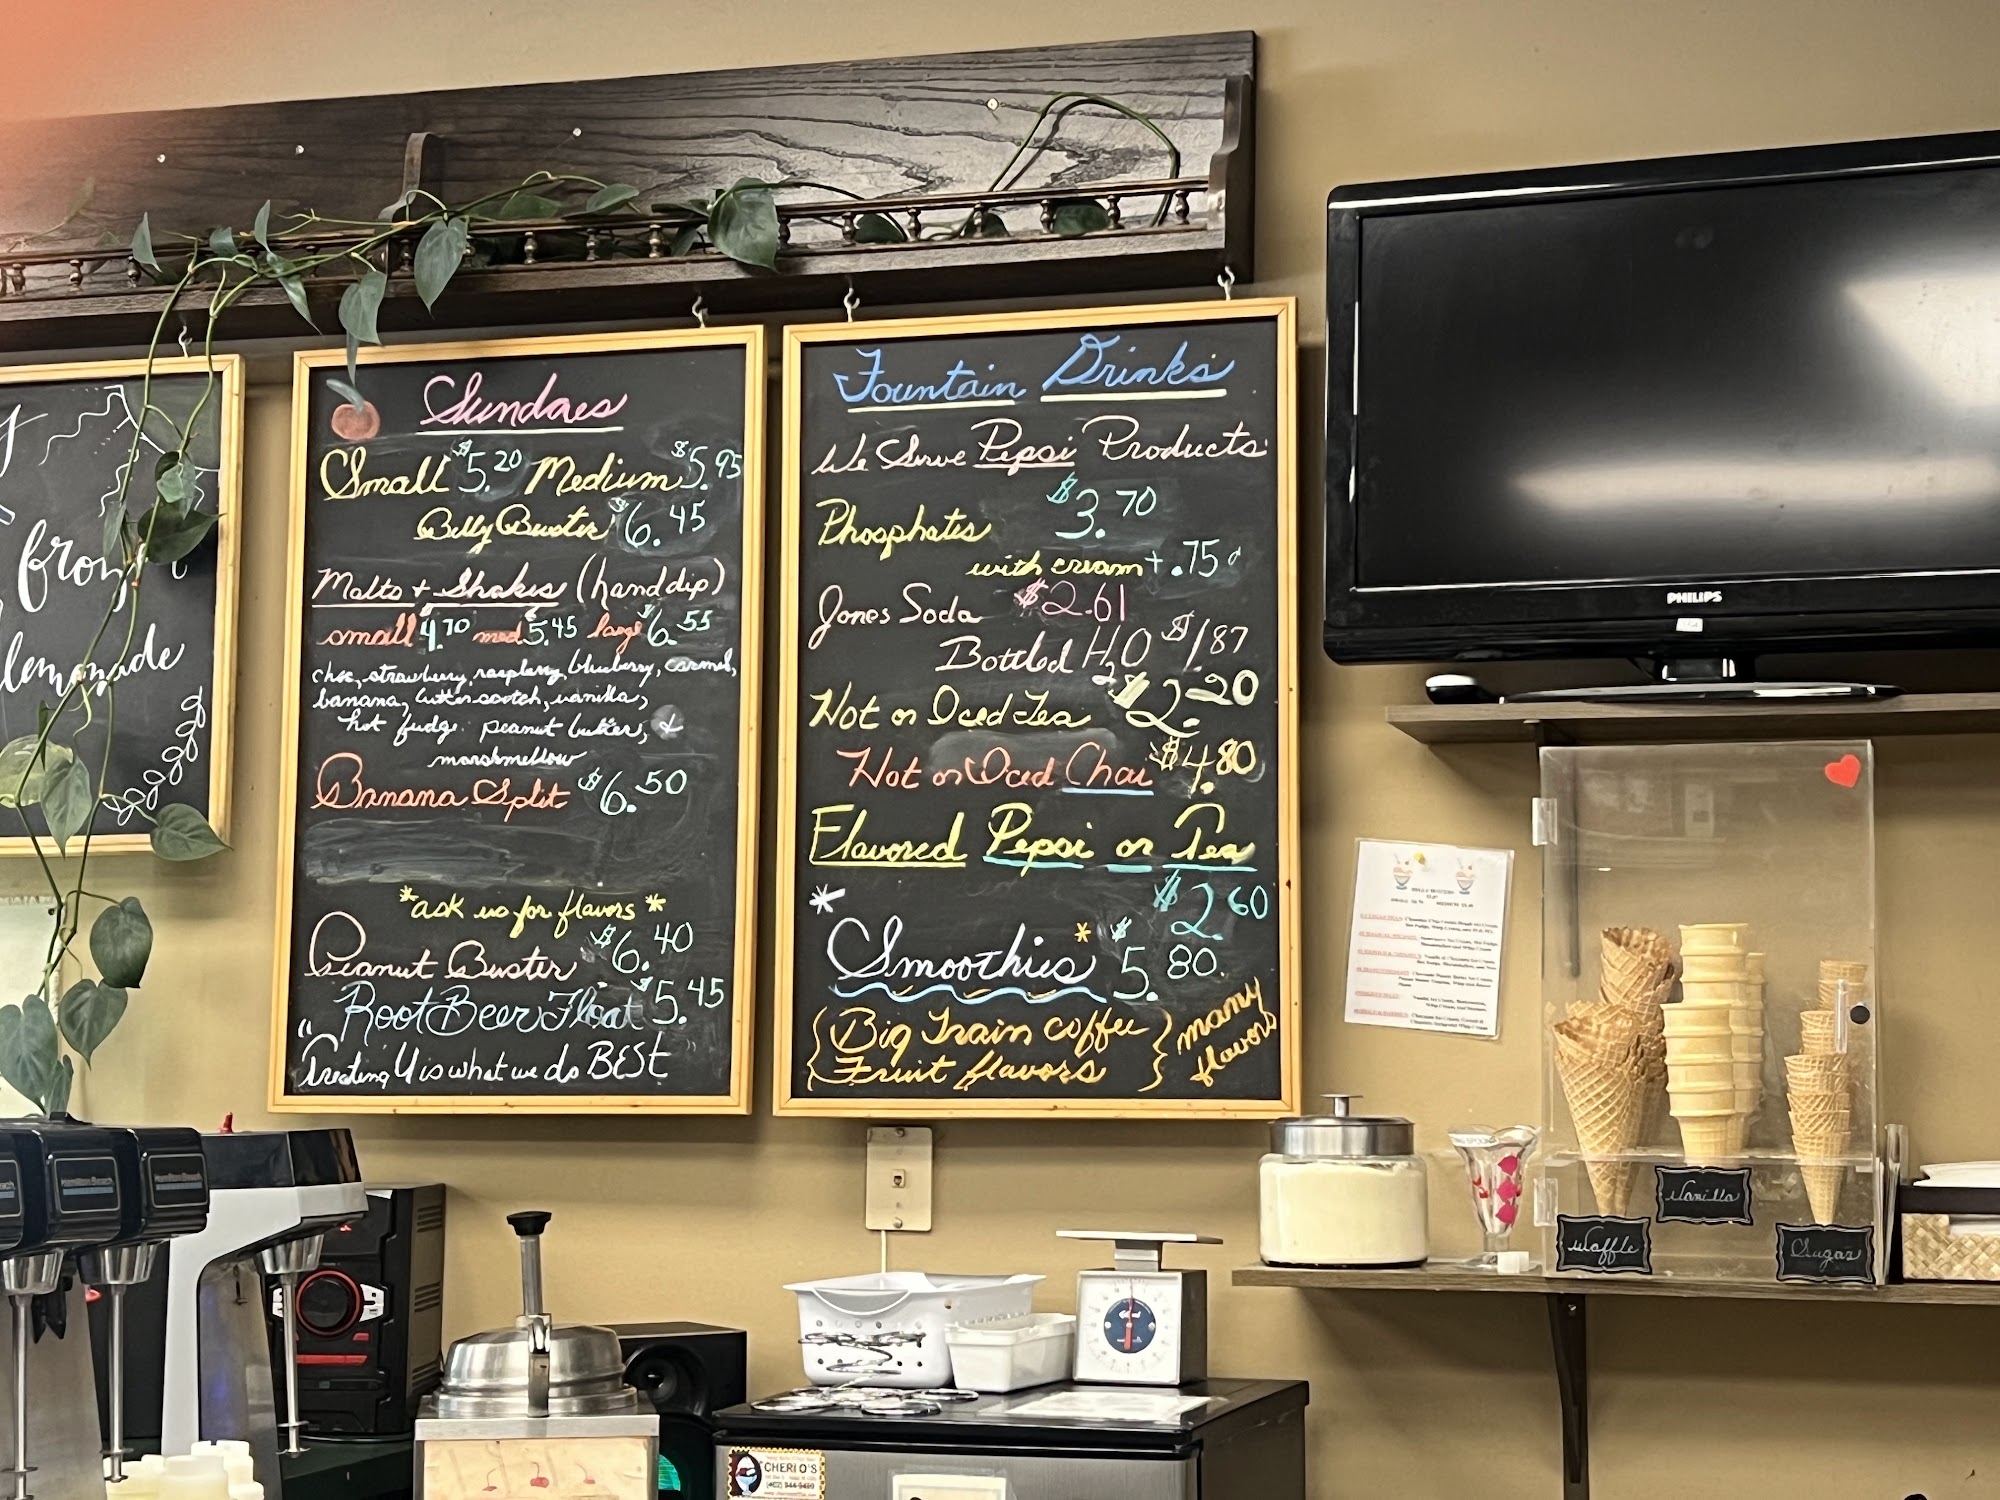 fron
lemonade
Sundaes
Small $5.20 Medium $5.95
Belly Buster $6.45
Malts + Shakes (hand dip)
small $4.70 med $5.45 large $6.55
choc, strawberry, raspberry, blueberry, carmel,
banana, butterscotch, vanilla,
hot fudge. peanut butter, &
marshmellow
Banana Split $6.50
*ask us for flavors*
Peanut Buster $6.40
Root Beer Float $5.45
"Treating U is what we do BEST
Fountain Drinks
We Serve Pepsi Products
Phosphates $3.70
with cream + .75¢
Jones Soda $2.61
Bottled H2O $1.87
Hot or Iced Tea $2.20
Hot or Iced Chai $4.80
Flavored Pepsi or Tea
$2.60
*Smoothies* $5.80
{Big Train coffee} many
{Fruit flavors} flavors
PHILIPS
Waffle
Vanilla
Sugar
Hamilton Beach
Hamilton Beach
CHERI O'S